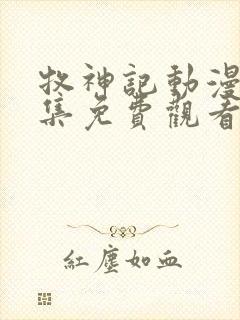 牧神記動漫
集免費觀看
紅塵如血